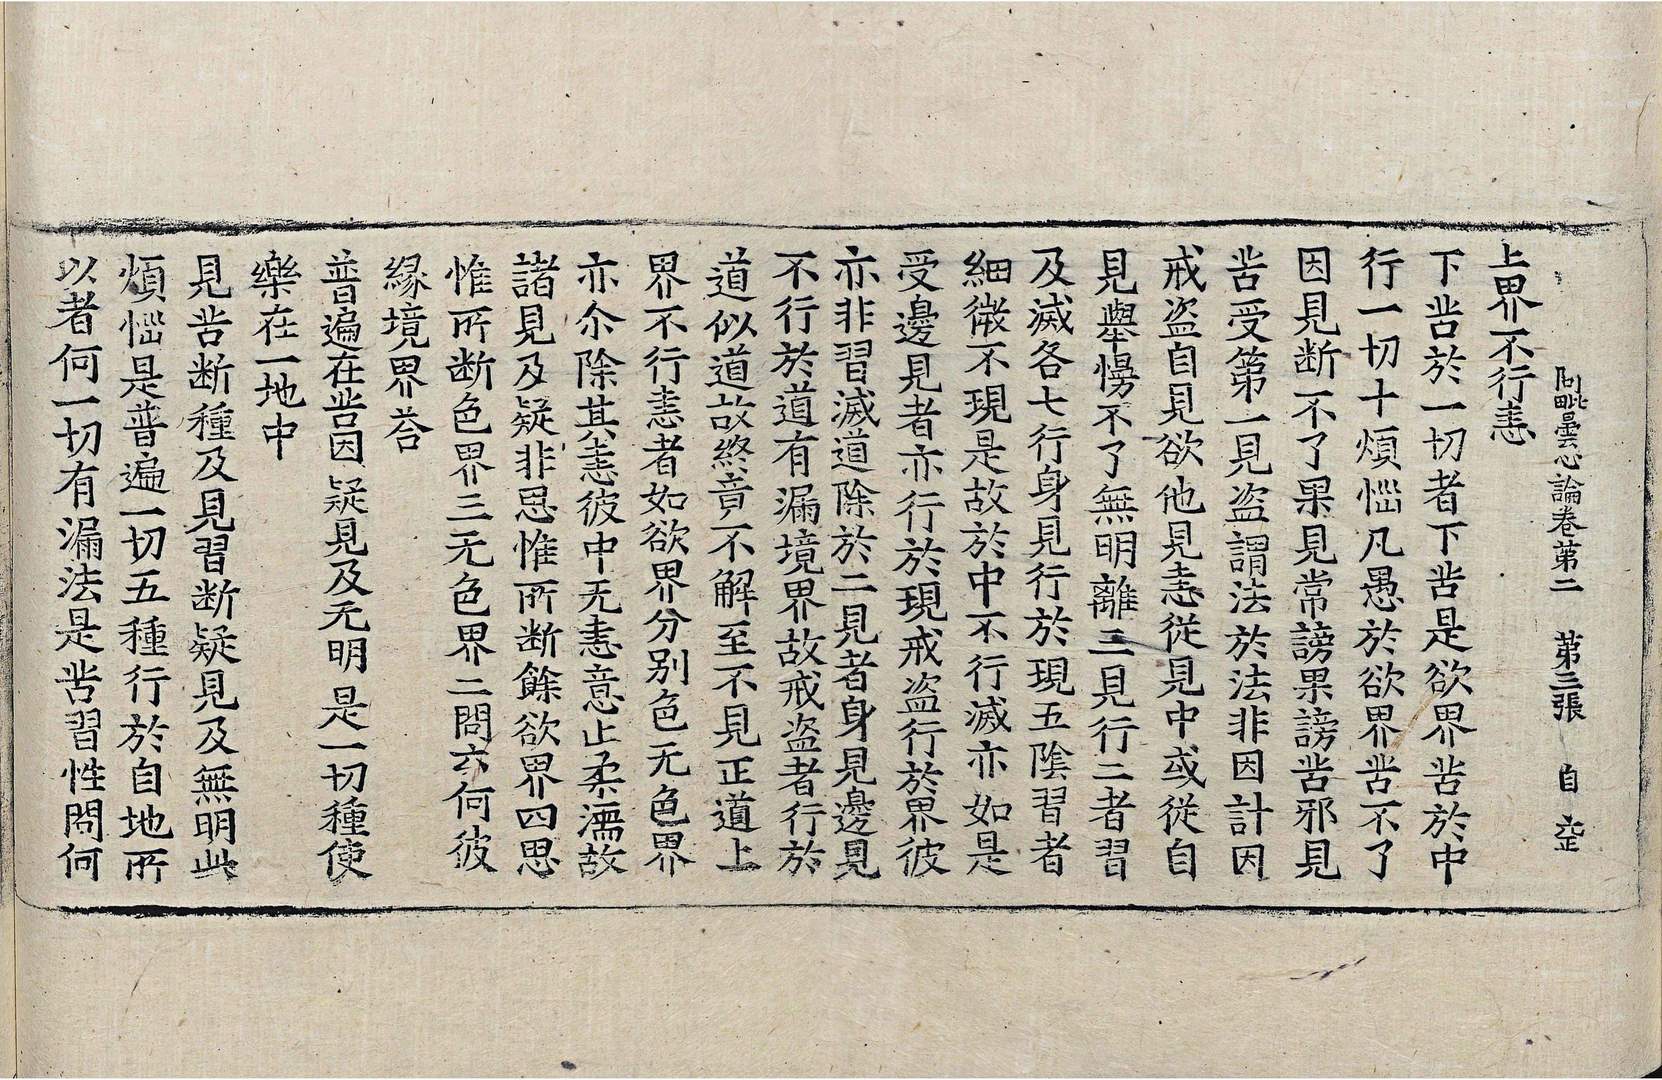 阿毗曇心論卷第二　第三張　自　
上界不行恚
下苦於一切者下苦是欲界苦於中
行一切十煩惱凡愚於欲界苦不了
因見断不了果見常謗果謗苦邪見
苦受第一見盗謂法於法非因計因
戒盗自見欲他見恚從見中或從自
見舉慢不了無明離三見行二者習
及滅各七行身見行於現五陰習者
細微不現是故於中不行滅亦如是
受邊見者亦行於現戒盗行於界彼
亦非習滅道除於二見者身見邊見
不行於道有漏境界故戒盗者行於
道似道故終竟不解至不見正道上
界不行恚者如欲界分别色无色界
亦尒除其恚彼中无恚意止柔濡故
諸見及疑非思惟所断餘欲界四思
惟所断色界三无色界二問云何彼
緣境界荅
普遍在苦因疑見及无明是一切種使
樂在一地中
見苦断種及見習断疑見及無明此
煩惱是普遍一切五種行於自地所
以者何一切有漏法是苦習性問何